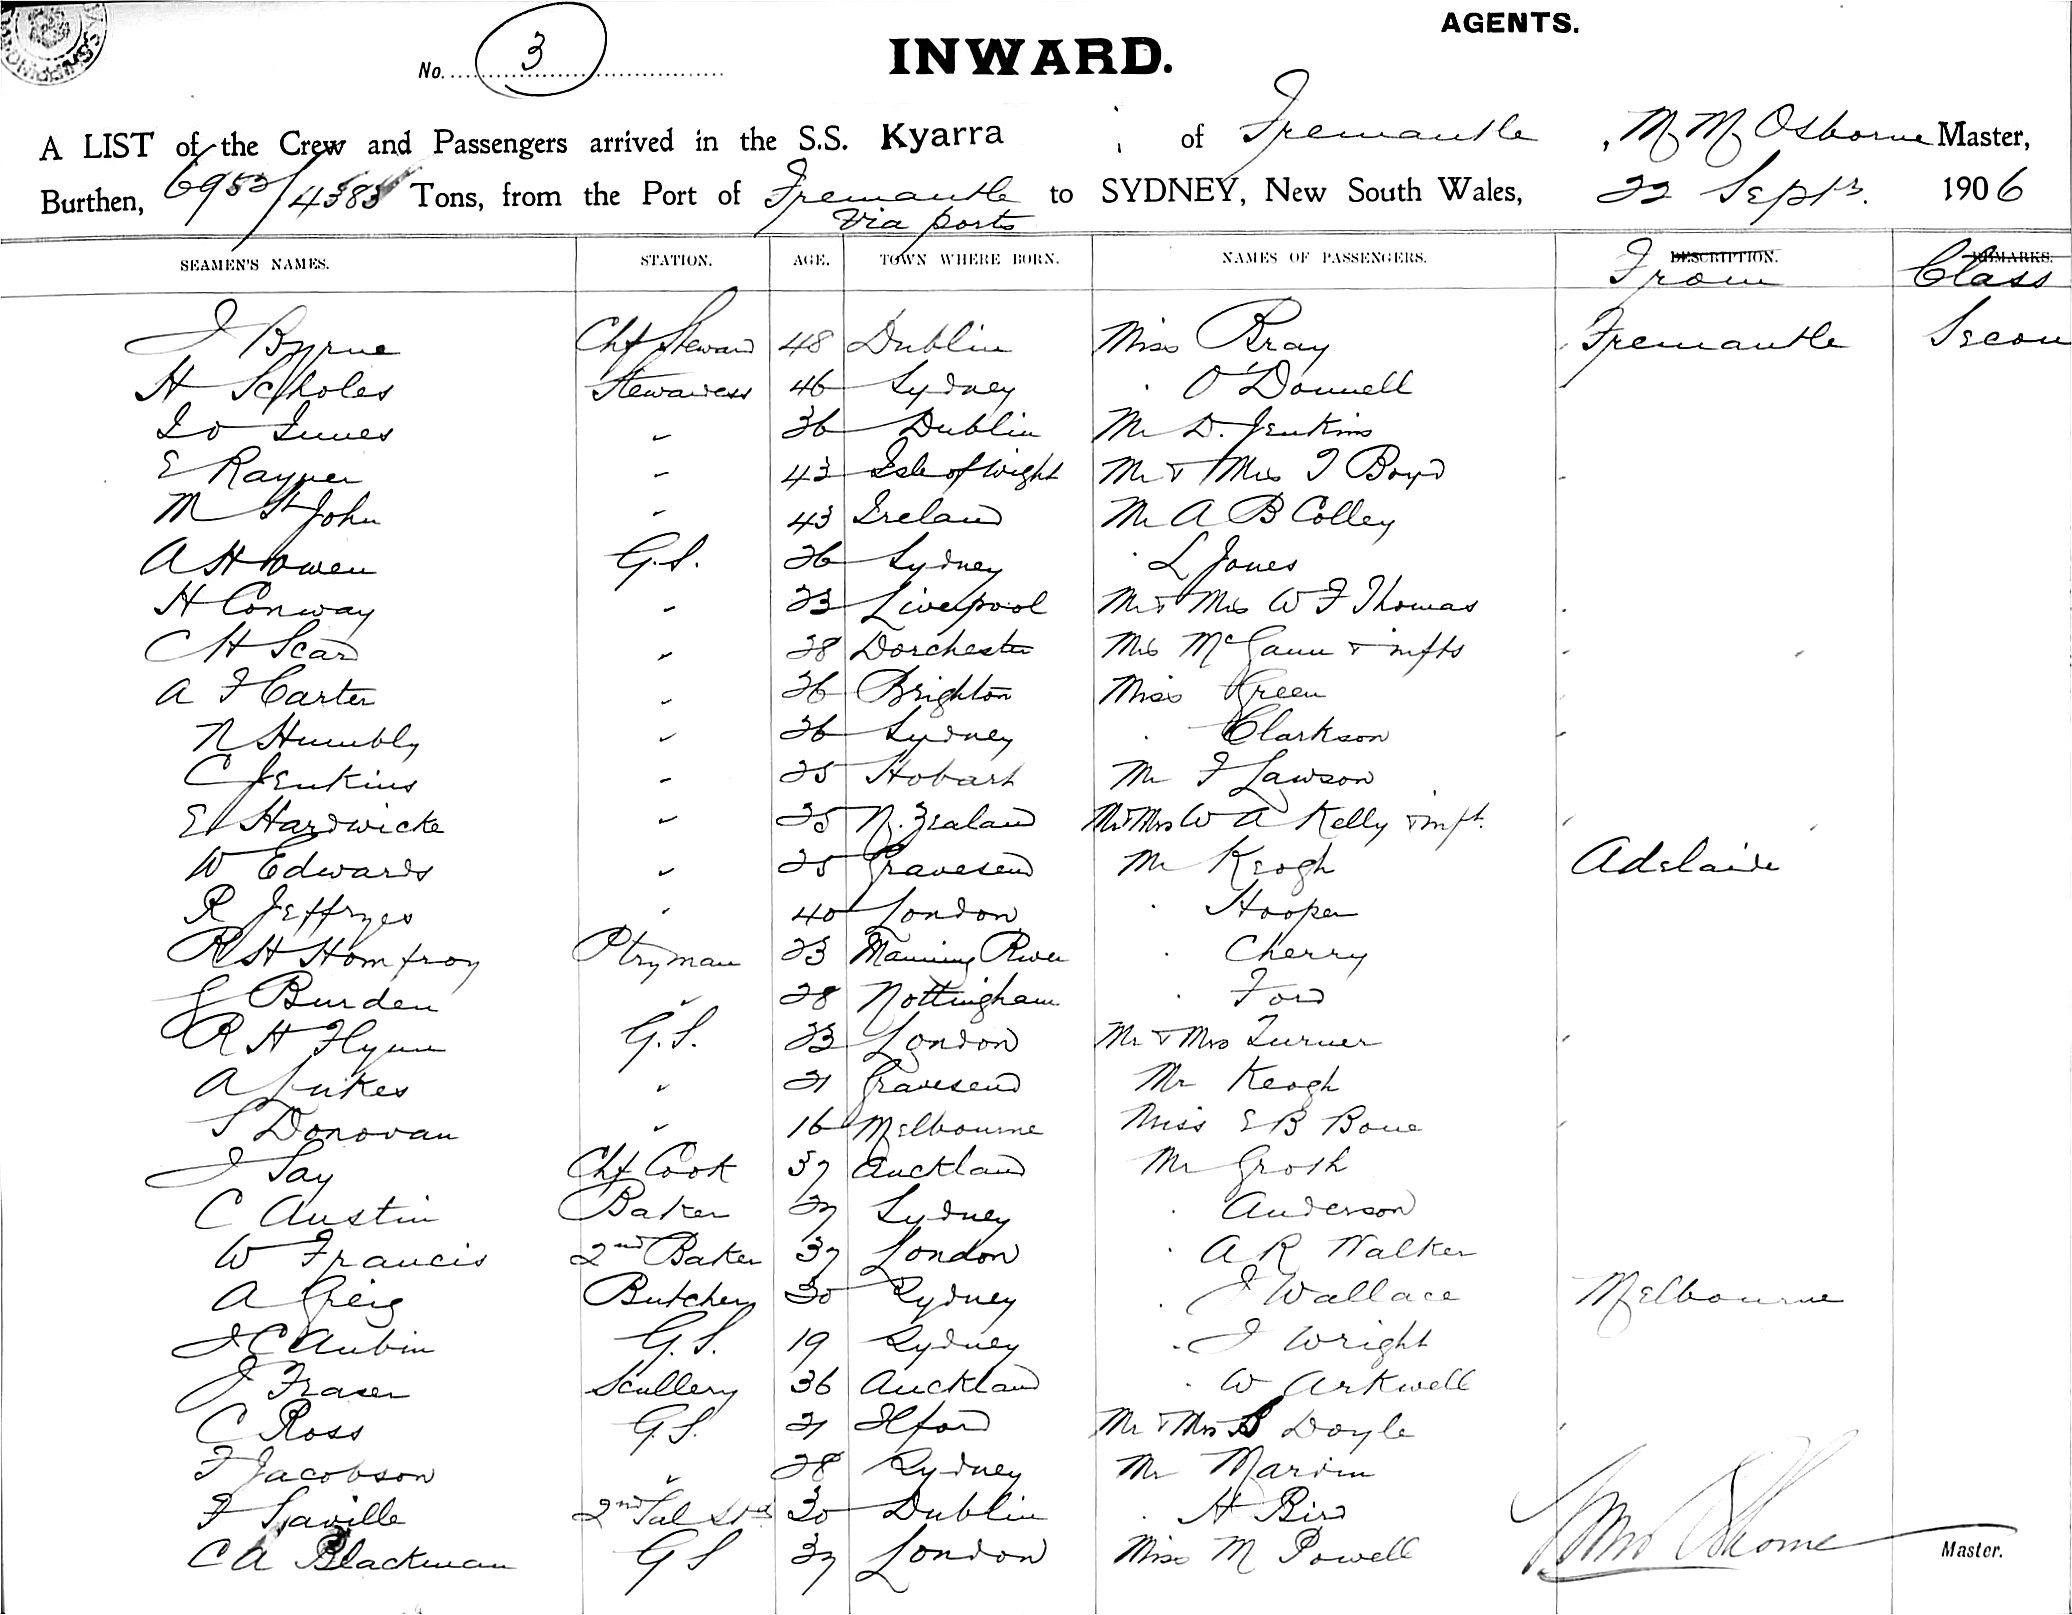 AGENTS.
No. 3
INWARD.
A LIST of the Crew and Passengers arrived in the S.S. Kyarra of Fremantle, M M Osborne Master,
Burthen, 6953/4383 Tons, from the Port of Fremantle to SYDNEY, New South Wales, 22 Septr. 1906
Via ports
SEAMEN'S NAMES. STATION. AGE. TOWN WHERE BORN. NAMES OF PASSENGERS. DESCRIPTION. REMARKS.
From Class
J Byrne Chf Steward 48 Dublin Miss Bray Fremantle Secon
H Scholes Stewardess 46 Sydney " O'Donnell
Innes " 36 Dublin Mr D. Jenkins
E Rayner " 43 Isle of Wight Mr & Mrs T Boyd
M St John " 43 Ireland Mr A B Colley
A H Owen G.S. 26 Sydney " L Jones
H Conway " 23 Liverpool Mr & Mrs W F Thomas
C H Scar " 28 Dorchester Mrs McGann & infts
A F Carter " 26 Brighton Miss Green
N Humbly " 26 Sydney " Clarkson
C Jenkins " 25 Hobart Mr F Lawson
E Hardwicke " 25 N. Zealand Mr & Mrs W A Kelly & inft.
W Edwards " 25 Gravesend Mr Keogh Adelaide
R Jeffryes " 40 London " Hooper
R H Homfroy Ptryman 23 Manning River " Cherry
G Burden " 28 Nottingham " Ford
R H Flynn G.S. 23 London Mr & Mrs Turner
A Jukes " 21 Gravesend Mr Keogh
S Donovan " 16 Melbourne Miss E B Bone
J Say Chf Cook 37 Auckland Mr Grosh
C Austin Baker 27 Sydney " Anderson
W Francis 2nd Baker 37 London " A R Walker
A Greig Butcher 30 Sydney " J Wallace Melbourne
J C Aubin G.S. 19 Sydney " J Wright
J Fraser Scullery 36 Auckland " W Arkwell
C Ross G.S. 21 Ilford Mr & Mrs B Doyle
F Jacobson " 28 Sydney Mr Mardin
F Saville 2nd Sal Std 30 Dublin " H Bird
C A Blackman G S 37 London Miss M Powell
Osborne Master.